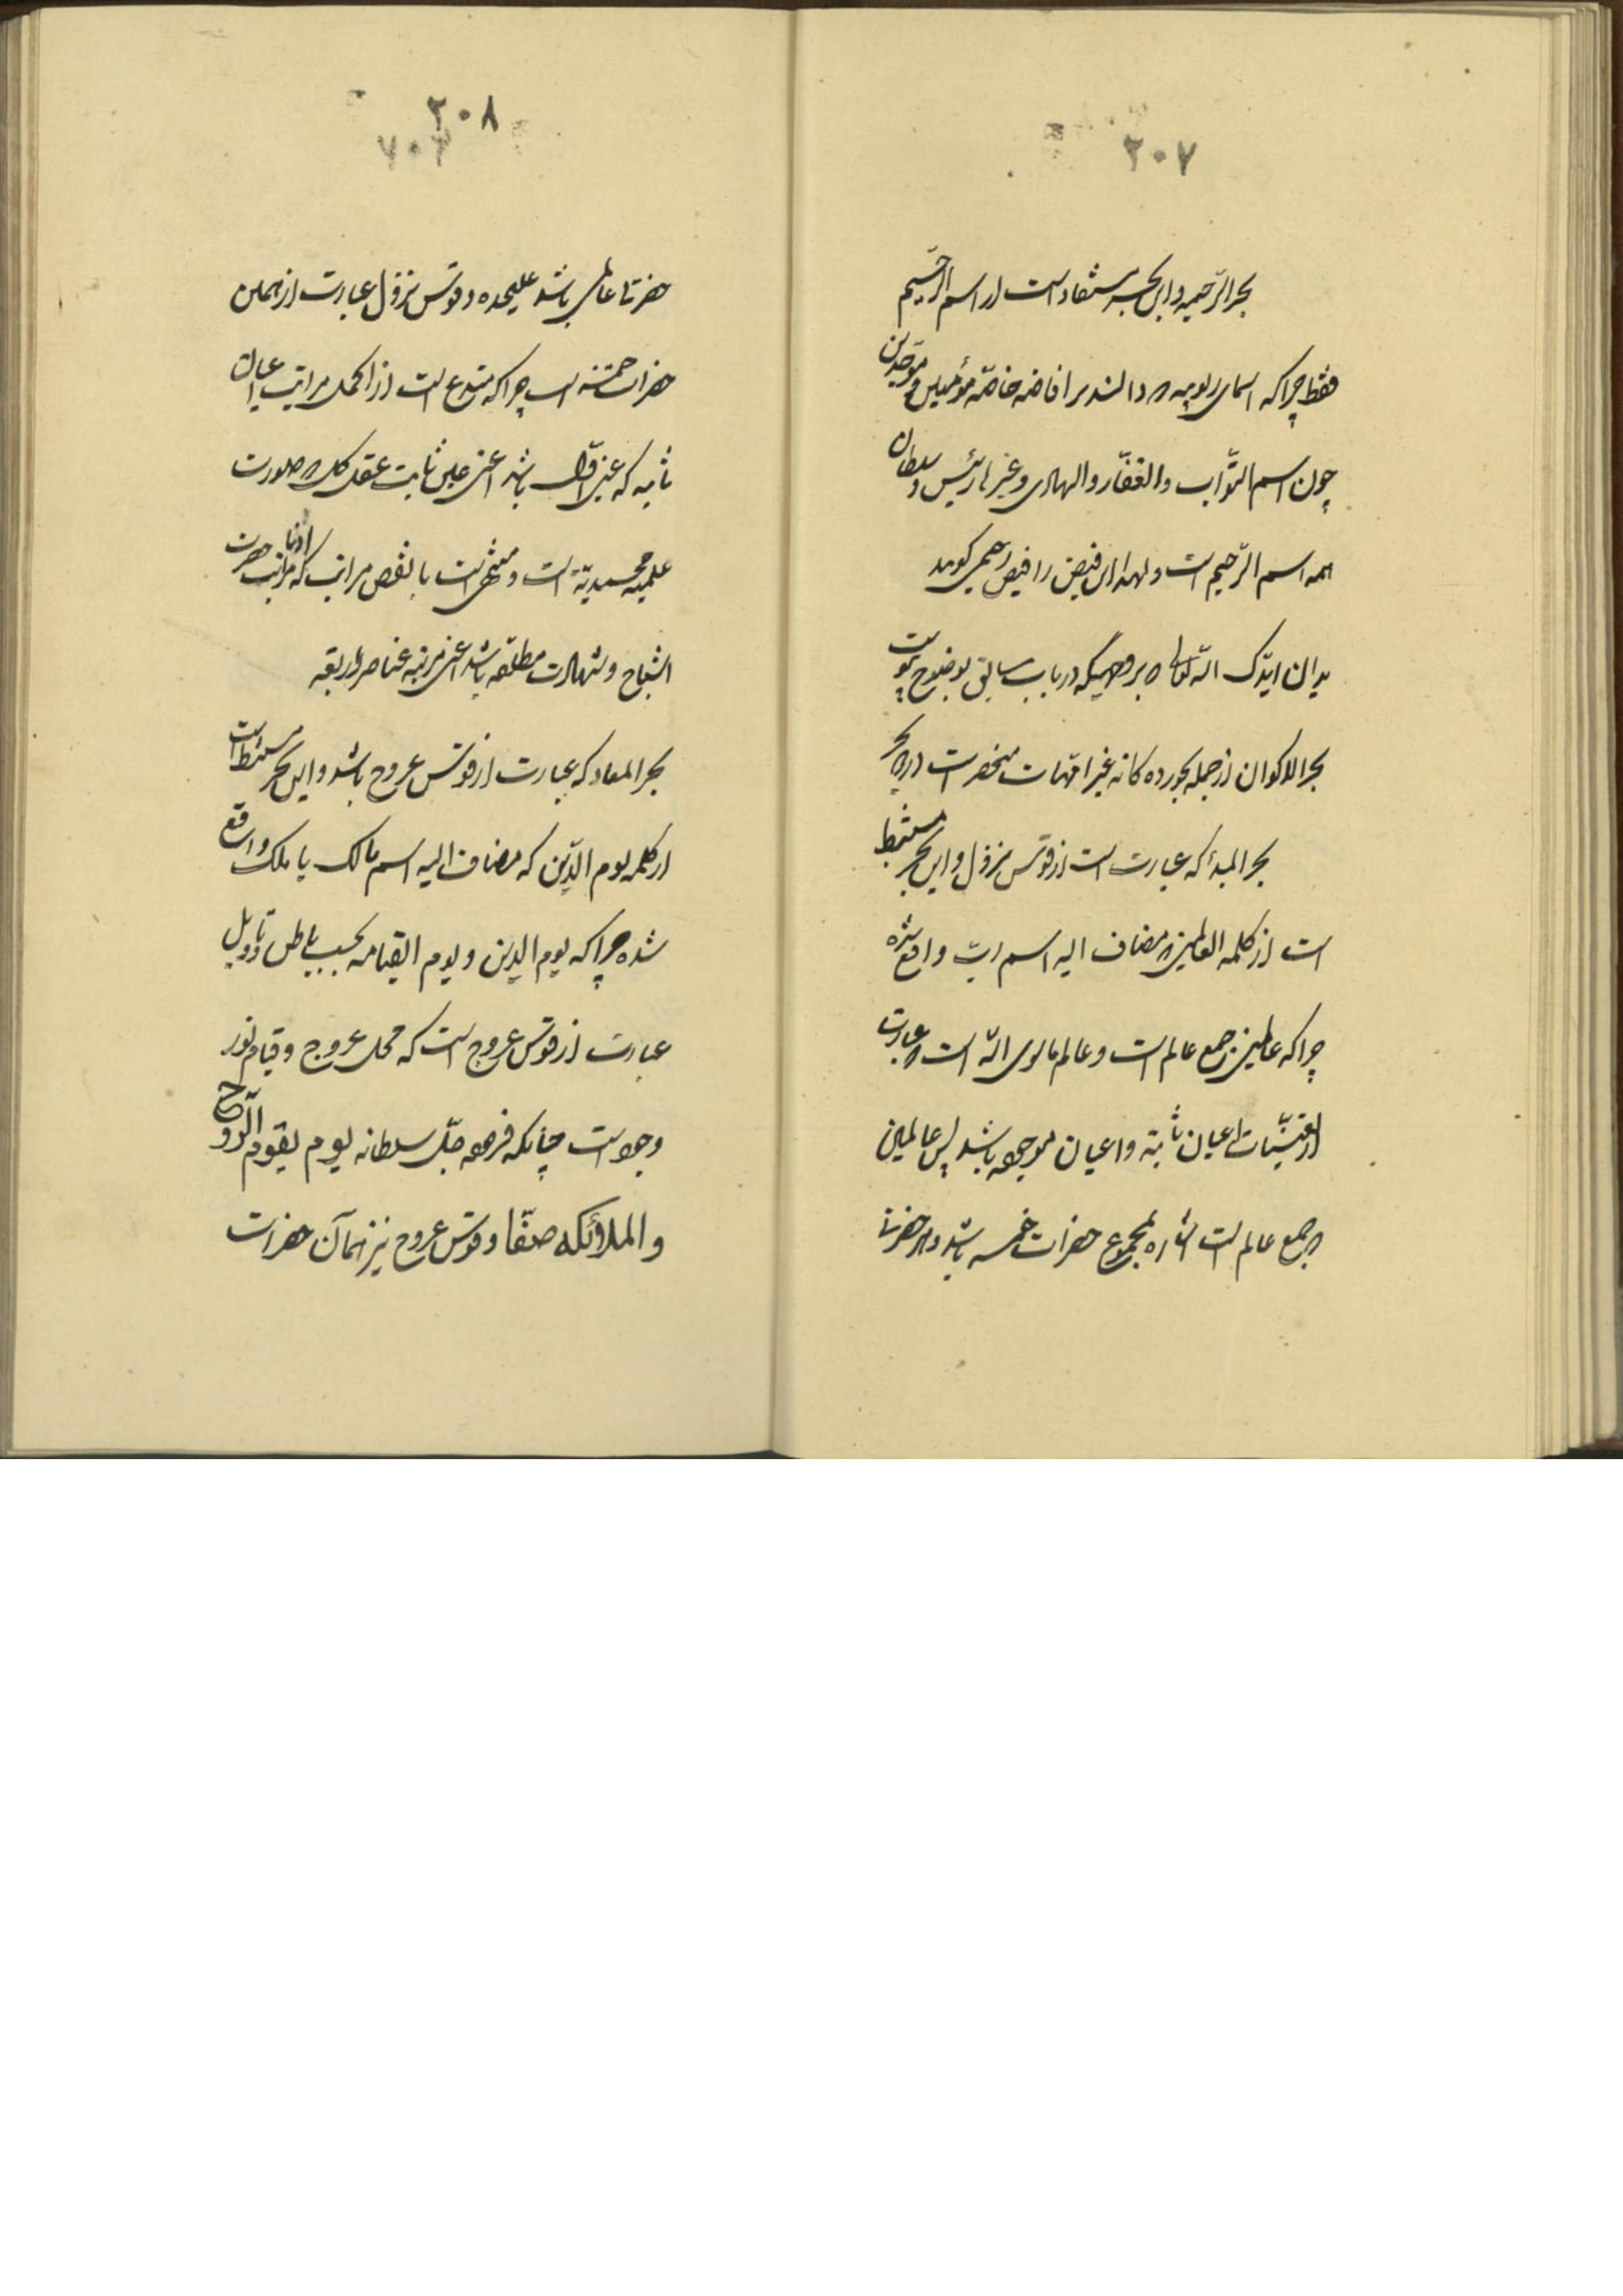 ۲۰۷
بحر الرّحیمیه و این بحر مستفاد است از اسم الرّحیم
فقط چراکه اسمای ربوبیه که دالند بر افاضه خاصّه مؤمنین و موحّدین
چون اسم التوّاب و الغفّار و الهادی و غیرها رئیس و سلطان
همه اسم الرّحیم است و لهذا این فیض را فیض رحیمی کویند
بدان ایّدک اللّه تعالی که بر وجهیکه در باب سابق بوضوح پیوست
بحر الاکوان از جمله بحور ده کانه غیر امّهات منحصر است در بحر
بحر المبدأ که عبارت است از قوس نزول و این بحر مستنبط
است از کلمه العالمین که مضاف الیه اسم ربّ واقع شده
چراکه عالمین جمع عالم است و عالم ماسوی اللّه است که عبارت
از تعیّنات اعیان ثابته و اعیان موجوده باشد پس عالمین
که جمع عالم است اشاره بمجموع حضرات خمسه باشد و هر حضرت
۲۰۸
حضرتا عالمی باشد علیحده و قوس نزول عبارت از همین
حضرات خمسه است چراکه مبتدع است از اکمل مراتب اعیان
ثابته که عین اوّل باشد اعنی عین ثابت عقل کل که صورت
علمیه محمدیّة است و منتهی است بانقص مراتب که ادنا مراتب حضرت
اشباح و شهادت مطلقه باشد اعنی مرتبه عناصر اربعه
بحر المعاد که عبارت از قوس عروج باشد و این بحر مستنبط است
از کلمه یوم الدّین که مضاف الیه اسم مالک یا ملک واقع
شده چراکه یوم الدین و یوم القیامه بحسب باطن و تاویل
عبارت از قوس عروج است که محل عروج و قیام نور
وجود است چنانکه فرموده جلّ سلطانه یوم یقوم الرّوح
و الملائکه صفّا و قوس عروج نیز همان حضرات